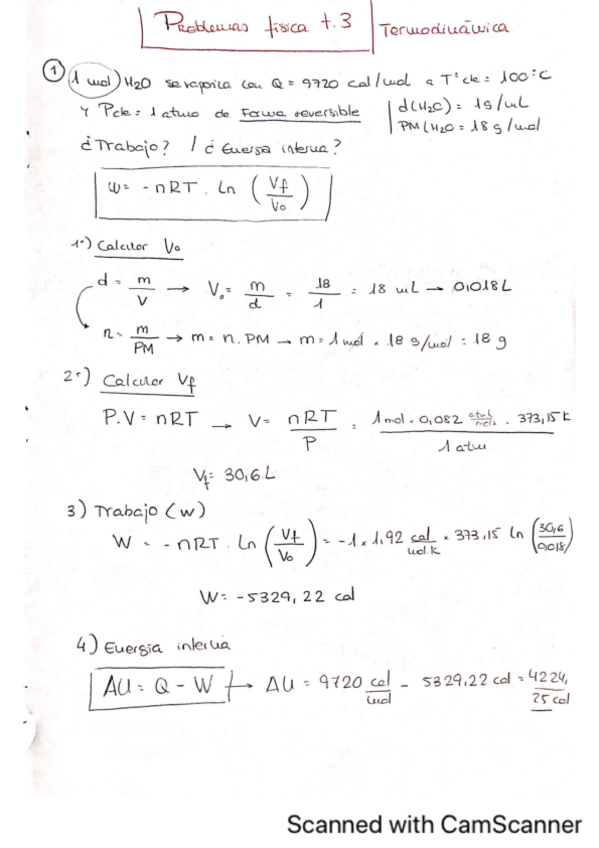 Problemas física t.3 Termodinámica
① 1 mol H2O se vaporiza con Q = 9720 cal/mol a Tª cte = 100°C
y Pcte = 1 atmo de forma reversible
d(H2O) = 1g/mL
PM(H2O = 18 g/mol
¿Trabajo? / ¿Energía interna?
W = -nRT · Ln (Vf/Vo)
1º) Calcular Vo
d = m/V → Vo = m/d = 18/1 = 18 mL → 0,018L
n = m/PM → m = n. PM → m = 1 mol · 18 g/mol = 18 g
2º) Calcular Vf
P.V = nRT → V = nRT/P = 1 mol · 0,082 atm L/mol k · 373,15 K / 1 atm
Vf = 30,6 L
3) Trabajo (W)
W = -nRT · Ln (Vf/Vo) = -1 · 1,92 cal/mol.K · 373,15 ln (30,6/0,018)
W = -5329,22 cal
4) Energía interna
ΔU = Q - W → ΔU = 9720 cal/mol - 5329,22 cal = 4224,
25 cal
Scanned with CamScanner